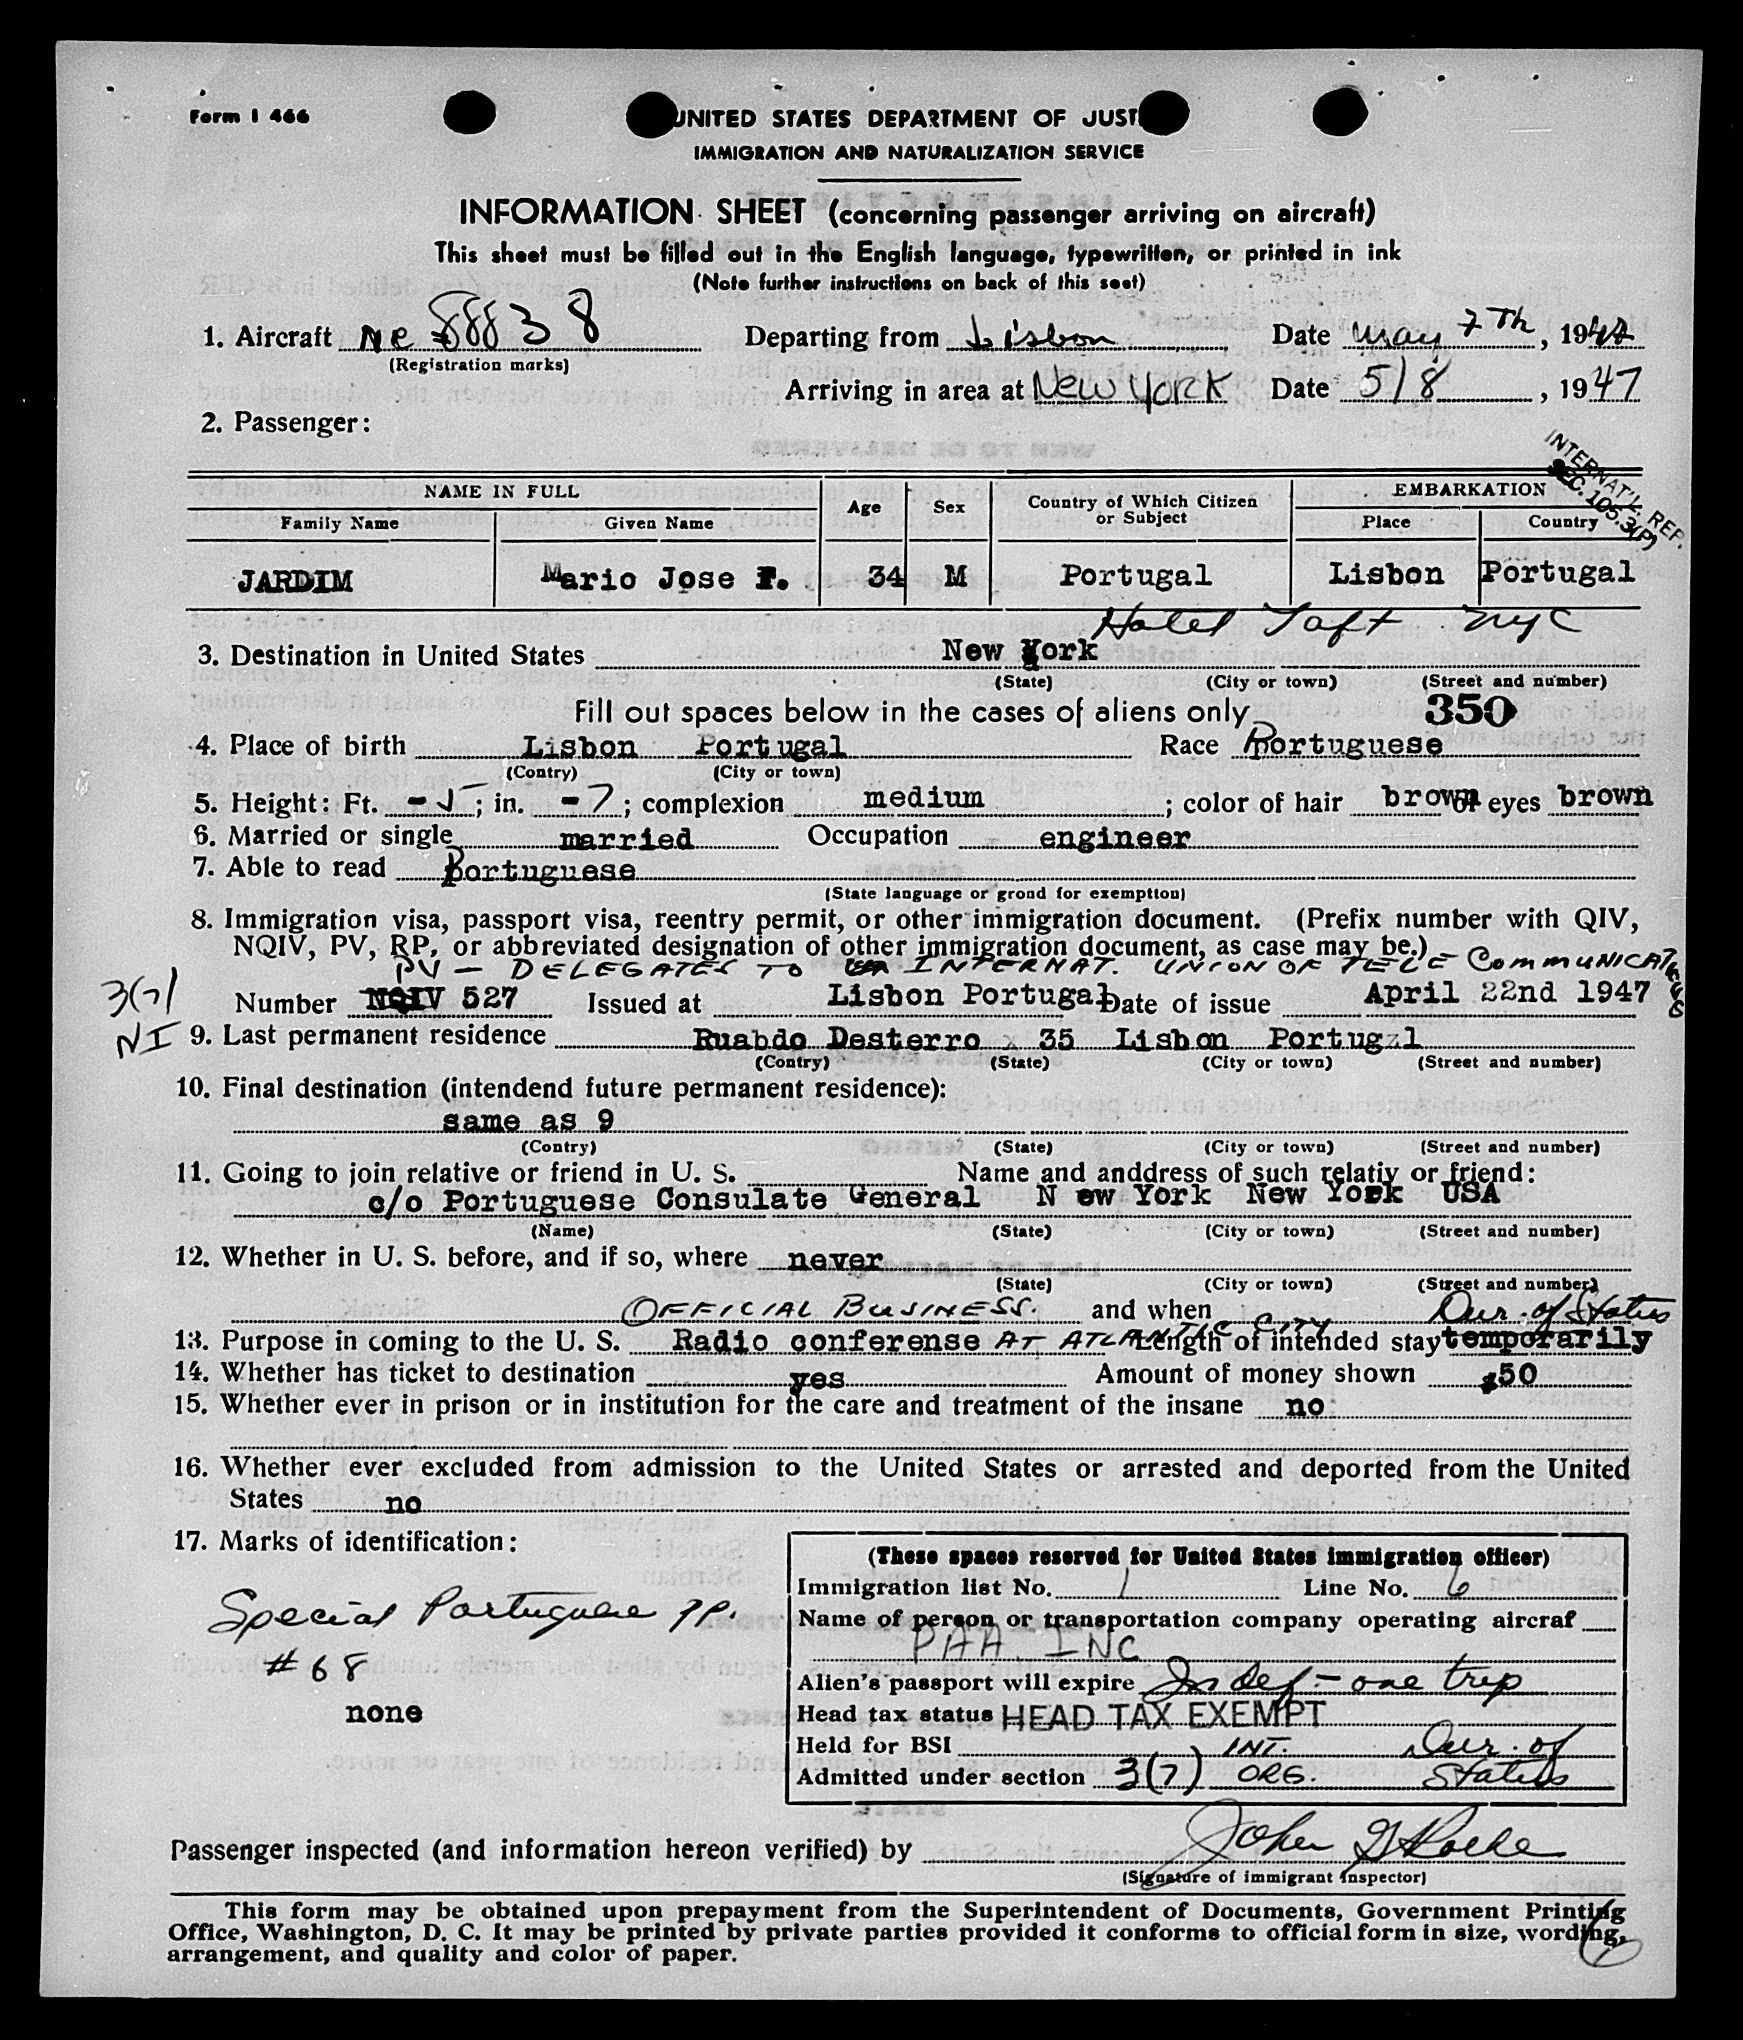 Form I 466
UNITED STATES DEPARTMENT OF JUST
IMMIGRATION AND NATURALIZATION SERVICE
INFORMATION SHEET (concerning passenger arriving on aircraft)
This sheet must be filled out in the English language, typewritten, or printed in ink
(Note further instructions on back of this seet)
1. Aircraft NC 88838 Departing from Lisbon Date May 7th, 1947
(Registration marks)
Arriving in area at New York Date 5/8, 1947
2. Passenger:
INTERNAT'L. REP.
SEC. 105.3(P)
NAME IN FULL Age Sex Country of Which Citizen or Subject EMBARKATION
Family Name Given Name Place Country
JARDIM Mario Jose F. 34 M Portugal Lisbon Portugal
Hotel Taft NYC
3. Destination in United States New York
(State) (City or town) (Street and number)
Fill out spaces below in the cases of aliens only 350
4. Place of birth Lisbon Portugal Race Portuguese
(Contry) (City or town)
5. Height: Ft. -5; in. -7; complexion medium; color of hair brown of eyes brown
6. Married or single married Occupation engineer
7. Able to read Portuguese
(State language or grond for exemption)
8. Immigration visa, passport visa, reentry permit, or other immigration document. (Prefix number with QIV,
NQIV, PV, RP, or abbreviated designation of other immigration document, as case may be.)
PV - DELEGATES TO INTERNAT. UNION OF TELE-COMMUNICATIONS
3(7) Number NQIV 527 Issued at Lisbon Portugal Date of issue April 22nd 1947
NI 9. Last permanent residence Ruabdo Desterro x 35 Lisbon Portugal
(Contry) (State) (City or town) (Street and number)
10. Final destination (intendend future permanent residence):
same as 9
(Contry) (State) (City or town) (Street and number)
11. Going to join relative or friend in U. S. Name and anddress of such relativ or friend:
c/o Portuguese Consulate General N ew York New York USA
(Name) (State) (City or town) (Street and number)
12. Whether in U. S. before, and if so, where never
(State) (City or town) (Street and number)
OFFICIAL BUSINESS. and when Dur. of Status
13. Purpose in coming to the U. S. Radio conferense AT ATLANTIC CITY Length of intended stay temporarily
14. Whether has ticket to destination yes Amount of money shown $50
15. Whether ever in prison or in institution for the care and treatment of the insane no
16. Whether ever excluded from admission to the United States or arrested and deported from the United
States no
17. Marks of identification:
Special Portuguese PP.
#68
none
(These spaces reserved for United States immigration officer)
Immigration list No. 1 Line No. 6
Name of person or transportation company operating aircraf
PAA. INC
Alien's passport will expire Indef. - one trip
Head tax status HEAD TAX EXEMPT
Held for BSI INT. Dur. of
Admitted under section 3(7) ORG. Status
Passenger inspected (and information hereon verified) by John
(Signature of immigrant inspector)
This form may be obtained upon prepayment from the Superintendent of Documents, Government Printing
Office, Washington, D. C. It may be printed by private parties provided it conforms to official form in size, wording,
arrangement, and quality and color of paper.